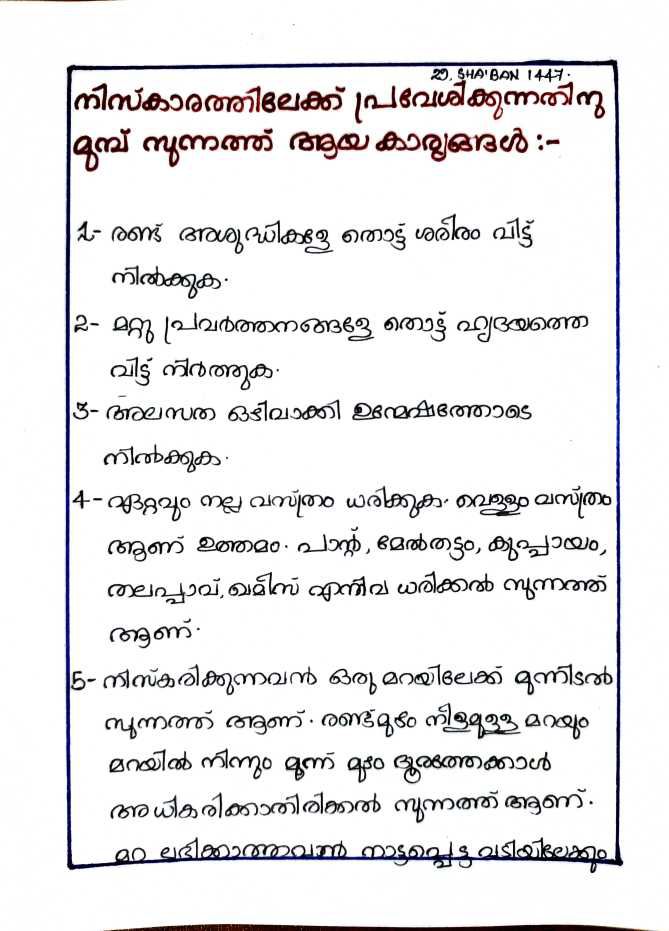 29. SHA'BAN 1447.
നിസ്കാരത്തിലേക്ക് പ്രവേശിക്കുന്നതിനു
മുമ്പ് സുന്നത്ത് ആയ കാര്യങ്ങൾ :-
1- രണ്ട് അശുദ്ധികളേ തൊട്ട് ശരീരം വിട്ട്
നിൽക്കുക.
2- മറ്റു പ്രവർത്തനങ്ങളേ തൊട്ട് ഹൃദയത്തെ
വിട്ട് നിർത്തുക.
3- അലസത ഒഴിവാക്കി ഉന്മേഷത്തോടെ
നിൽക്കുക.
4- ഏറ്റവും നല്ല വസ്ത്രം ധരിക്കുക. വെള്ളം വസ്ത്രം
ആണ് ഉത്തമം. പാന്റ്, മേൽതട്ടം, കുപ്പായം,
തലപ്പാവ്, ഖമീസ് എന്നിവ ധരിക്കൽ സുന്നത്ത്
ആണ്.
5- നിസ്കരിക്കുന്നവൻ ഒരു മറയിലേക്ക് മുന്നിടൽ
സുന്നത്ത് ആണ്. രണ്ട്മുഴം നീളമുള്ള മറയും
മറയിൽ നിന്നും മൂന്ന് മുഴം ദൂരത്തേക്കാൾ
അധികരിക്കാതിരിക്കൽ സുന്നത്ത് ആണ്.
മറ ലഭിക്കാത്തവൻ നാട്ടപ്പെട്ട വടിയിലേക്കും